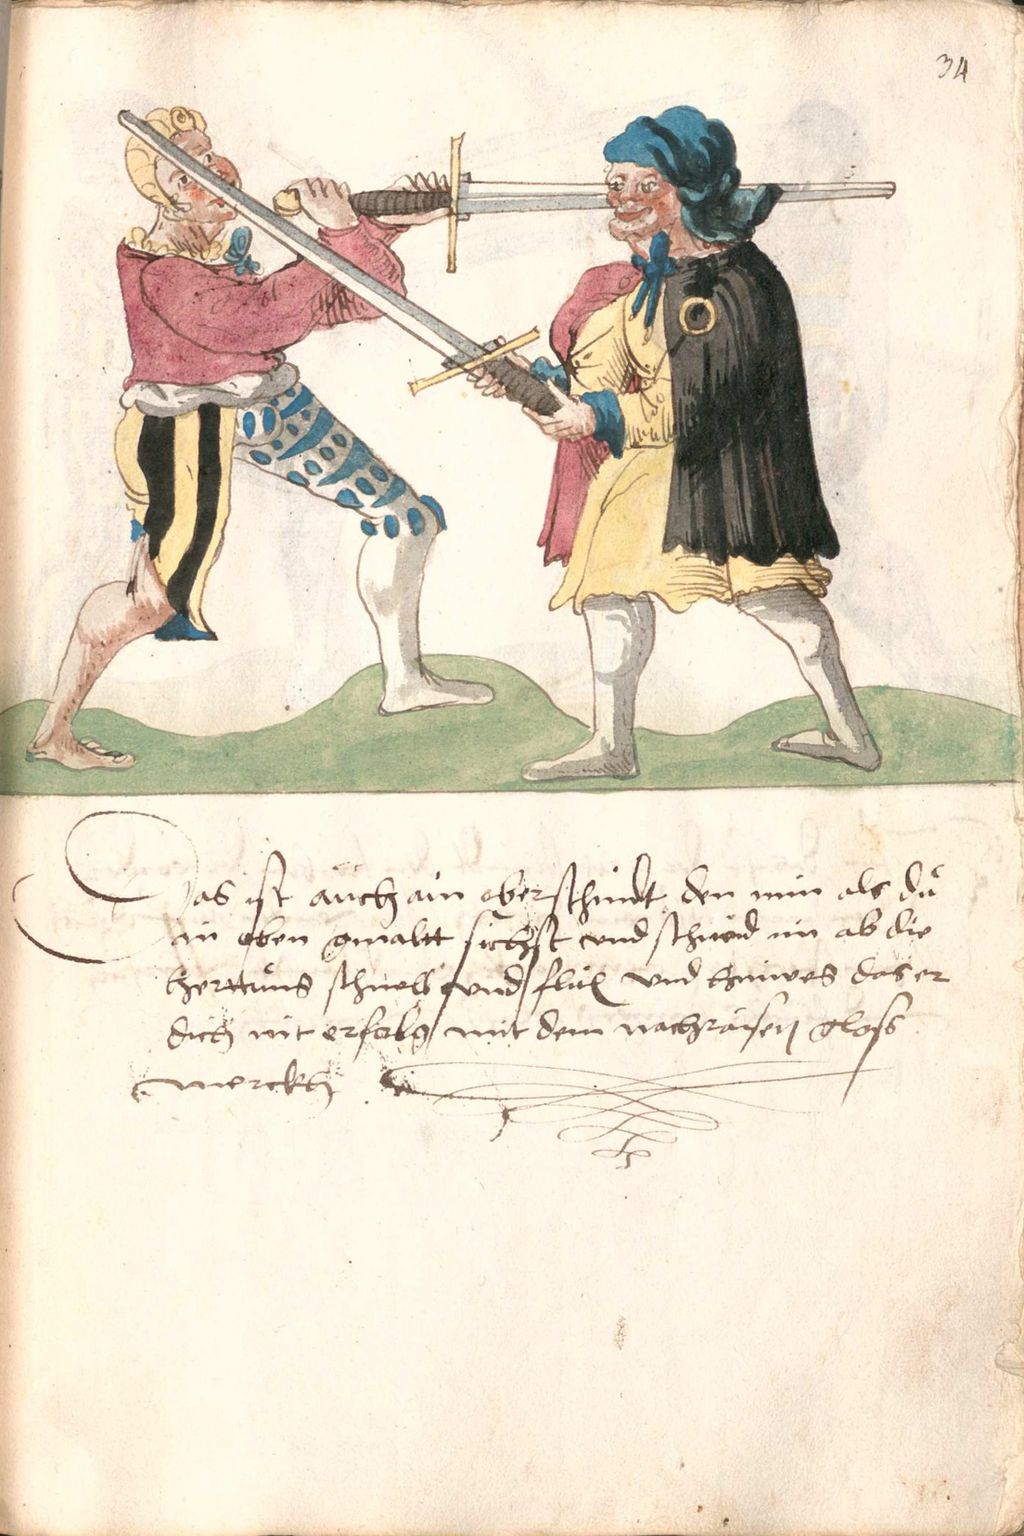 34
Das ist auch ain oberschnidt den nim als du
in oben gmaltt sichst vnd schneid im ab die
herttung schnell vnd flux vnd hinweg das er
dich nit erfolg mit dem nachraisen gloss
merckh